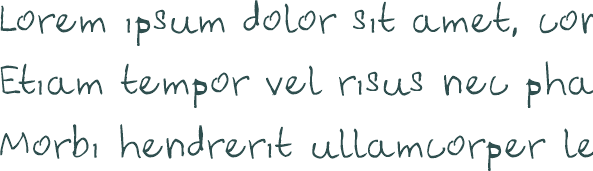 Lorem ipsum dolor sit amet, cor
Etiam tempor vel risus nec pha
Morbi hendrerit ullamcorper le